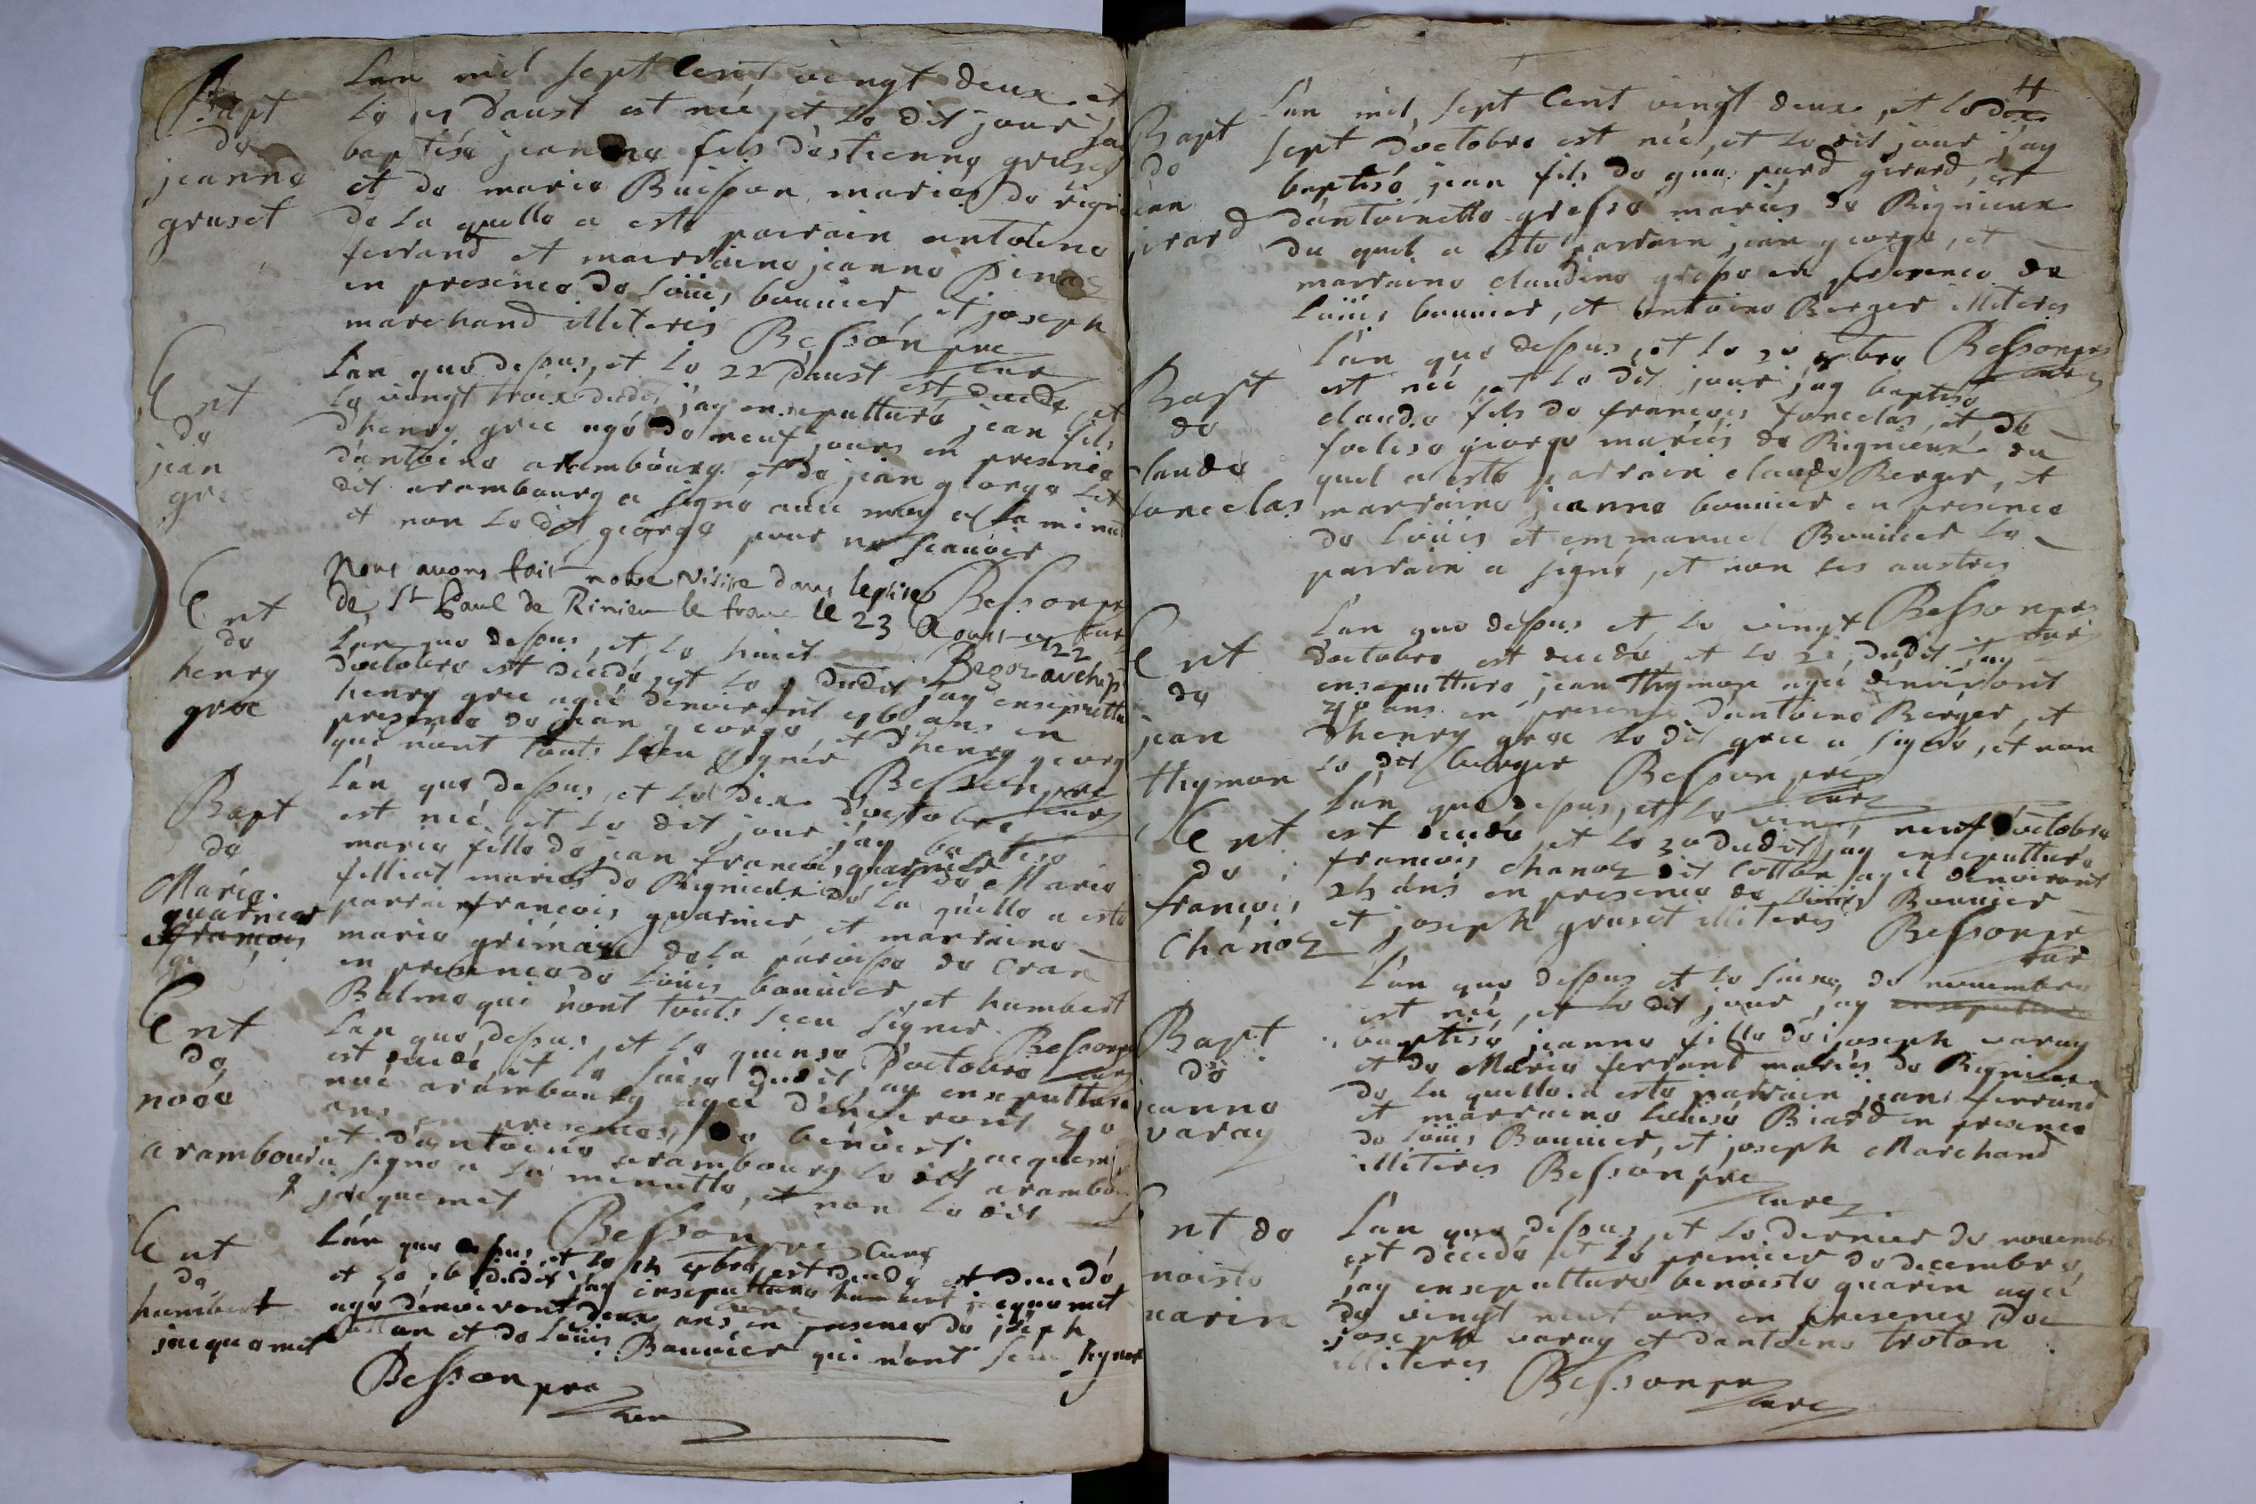 Bapt
de
jeanne
gruset
Lan mil sept Cent vingt deux et
le daust est née et le dit jour jay
baptisé jeanne fils destienne gruset
et de marie Buisson mariés de rigni
de la quelle a esté parrain antoine
ferrand et marraine jeanne
en presence de Loüis bonnier, et joseph
marchand illiteres Besson pre
curé
Ent
de
jean
grec
Lan que dessus, et le 22 daust est decedé, et
le vingt trois dudit jay ensepulturé jean fils
dhenry grec agé de neuf jours en presence
dantoine arambourg et de jean george led
dit arambourg a signé avec moy a la minut
et non le dit george pour ne scauoir
Besson pre
curé
Nous avons fait notre visite dans leglise
de St Paul de Rinieu le franc le 23 Aoust 1722
archip
Ent
de
henry
grec
Lan que dessus, et le huict
doctobre est decedé, et le 9 dudit jay ensepultu
henry grec agé denviront ans en
presence de jean george, et dhenry georg
qui n'ont touts sceu signer
Besson pre
curé
Bapt
de
Marie
guarnier
françois
Lan que dessus, et le dix doctobre
est née, et le dit jour jay baptisé
marie fille de jean francois guarnier et de Marie
filliat mariés de Rignieux de la quelle a esté
parrain françois guarnier et marraine
marie de la paroisse de Cran
en presence de Loüis bonnier, et humbert
Balme qui n'ont touts sceu signer
Besson pre
curé
Ent
de
noée
arambourg
Lan que dessus, et le quinse doctobre
est decedé et le saise dudit jay ensepulturé
noé arambourg agée denviront 30
ans en presence de benoist jacquem
et dantoine arambourg le dit arambou
a signé a la minutte, et non le dit
jacquemet
Besson pre curé
Ent
de
humbert
jacquemet
Lan que dessus, et le est decedé et decedé
et le 16 dudit jay ensepulturé humbert jacquemet
agé denviront deux ans en presence de joseph
et de Loüis Bonnier qui n'ont sceu signer
Besson pre
curé
4
Bapt
de
jean
jirard
Lan mil sept Cent vingt deux, et le dix
sept doctobre est née, et le dit jour jay
baptisé jean fils de gaspard girard, et
dantoinette grosse mariés de Rignieux
du quel a esté parrain jean george, et
marraine claudine grosse en presence de
Loüis bonnier, et antoine Berger illiteres
Besson pre
curé
Bapt
de
claude
foncelas
Lan que dessus, et le 20 8bre
est née, et le dit jour jay baptisé
claude fils de françois foncelas, et de
foelise george mariés de Rignieux du
quel a esté parrain claude Berger, et
marraine jeanne bonnier en presence
de Loüis et emmanuel Bonnier le
parrain a signé, et non les austres
Besson pre
curé
Ent
de
jean
thymon
Lan que dessus et le vingt
doctobre est decedé, et le 21 dudit jay
ensepulturé jean thymon agé denviront
ans en presence dantoine Berger, et
dhenry grec le dit grec a signé, et non
le dit berger Besson pre
curé
Ent
de
françois
Chanoz
Lan que dessus, et le vingt neuf doctobre
est decedé, et le 30 dudit jay ensepulturé
françois chanoz dit Cottan agé denviront
ans en presence de Loüis Bonnier
et joseph gruset illiteres
Besson pre
curé
Bapt
de
jeanne
varay
Lan que dessus et le sinq de novembre
est née, et le dit jour jay ensepulturé
baptisé jeanne fille de joseph varay
et de Marie ferrand mariés de Rignieux
de la quelle a esté parrain jean ferrand
et marraine Louise Biard en presence
de Loüis Bonnier, et joseph Marchand
illiteres Besson pre
curé
Ent de
noiste
uarin
Lan que dessus, et le dernier de novemb
est decedé et le premier de decembre
jay ensepulturé benoiste guarin agée
de vingt neuf ans en presence de
joseph varay et dantoine troton
illiteres
Besson pre
curé